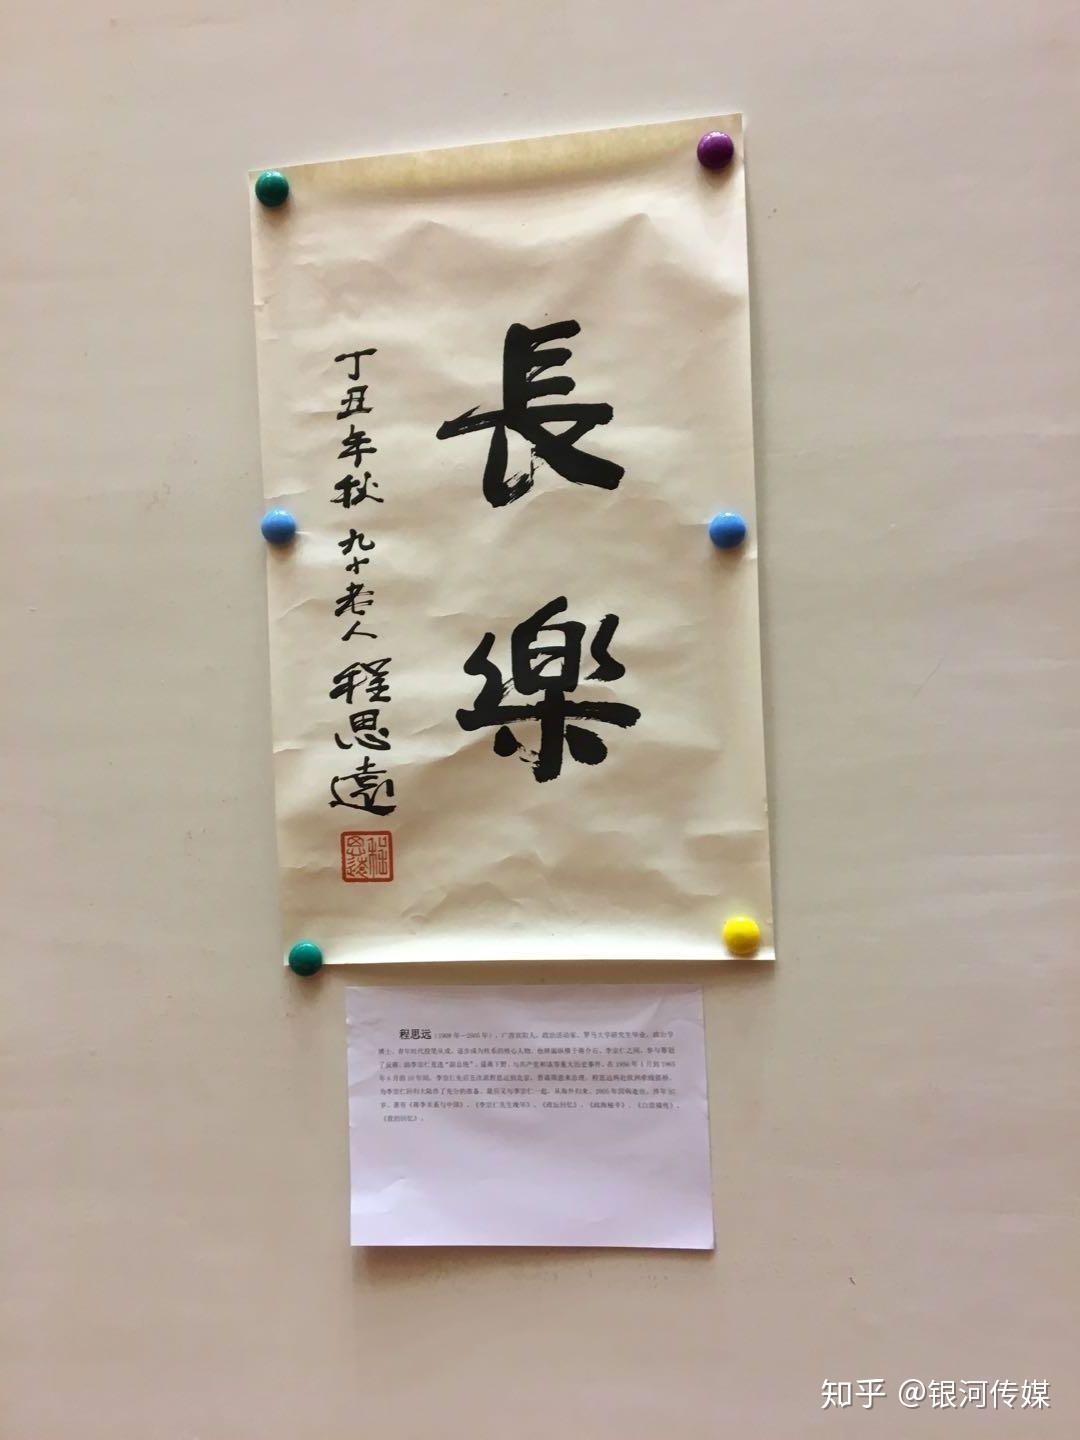 長樂
丁丑年秋 九十老人 程思遠
程思遠
程思远（1908年－2005年），广西宾阳人，政治活动家，罗马大学研究生毕业，政治学
博士。青年时代投笔从戎，逐步成为桂系的核心人物，他斡旋纵横于蒋介石、李宗仁之间，参与筹划
了反蒋、助李宗仁竞选“副总统”、逼蒋下野、与共产党和谈等重大历史事件。在1956年1月到1965
年6月的10年间，李宗仁先后五次派程思远到北京，晋谒周恩来总理，程思远两赴欧洲牵线搭桥，
为李宗仁回归大陆作了充分的准备。最后又与李宗仁一起，从海外归来。2005年因病逝世，终年97
岁。著有《蒋李关系与中国》、《李宗仁先生晚年》、《政坛回忆》、《政海秘辛》、《白崇禧传》、
《我的回忆》。
知乎 @银河传媒